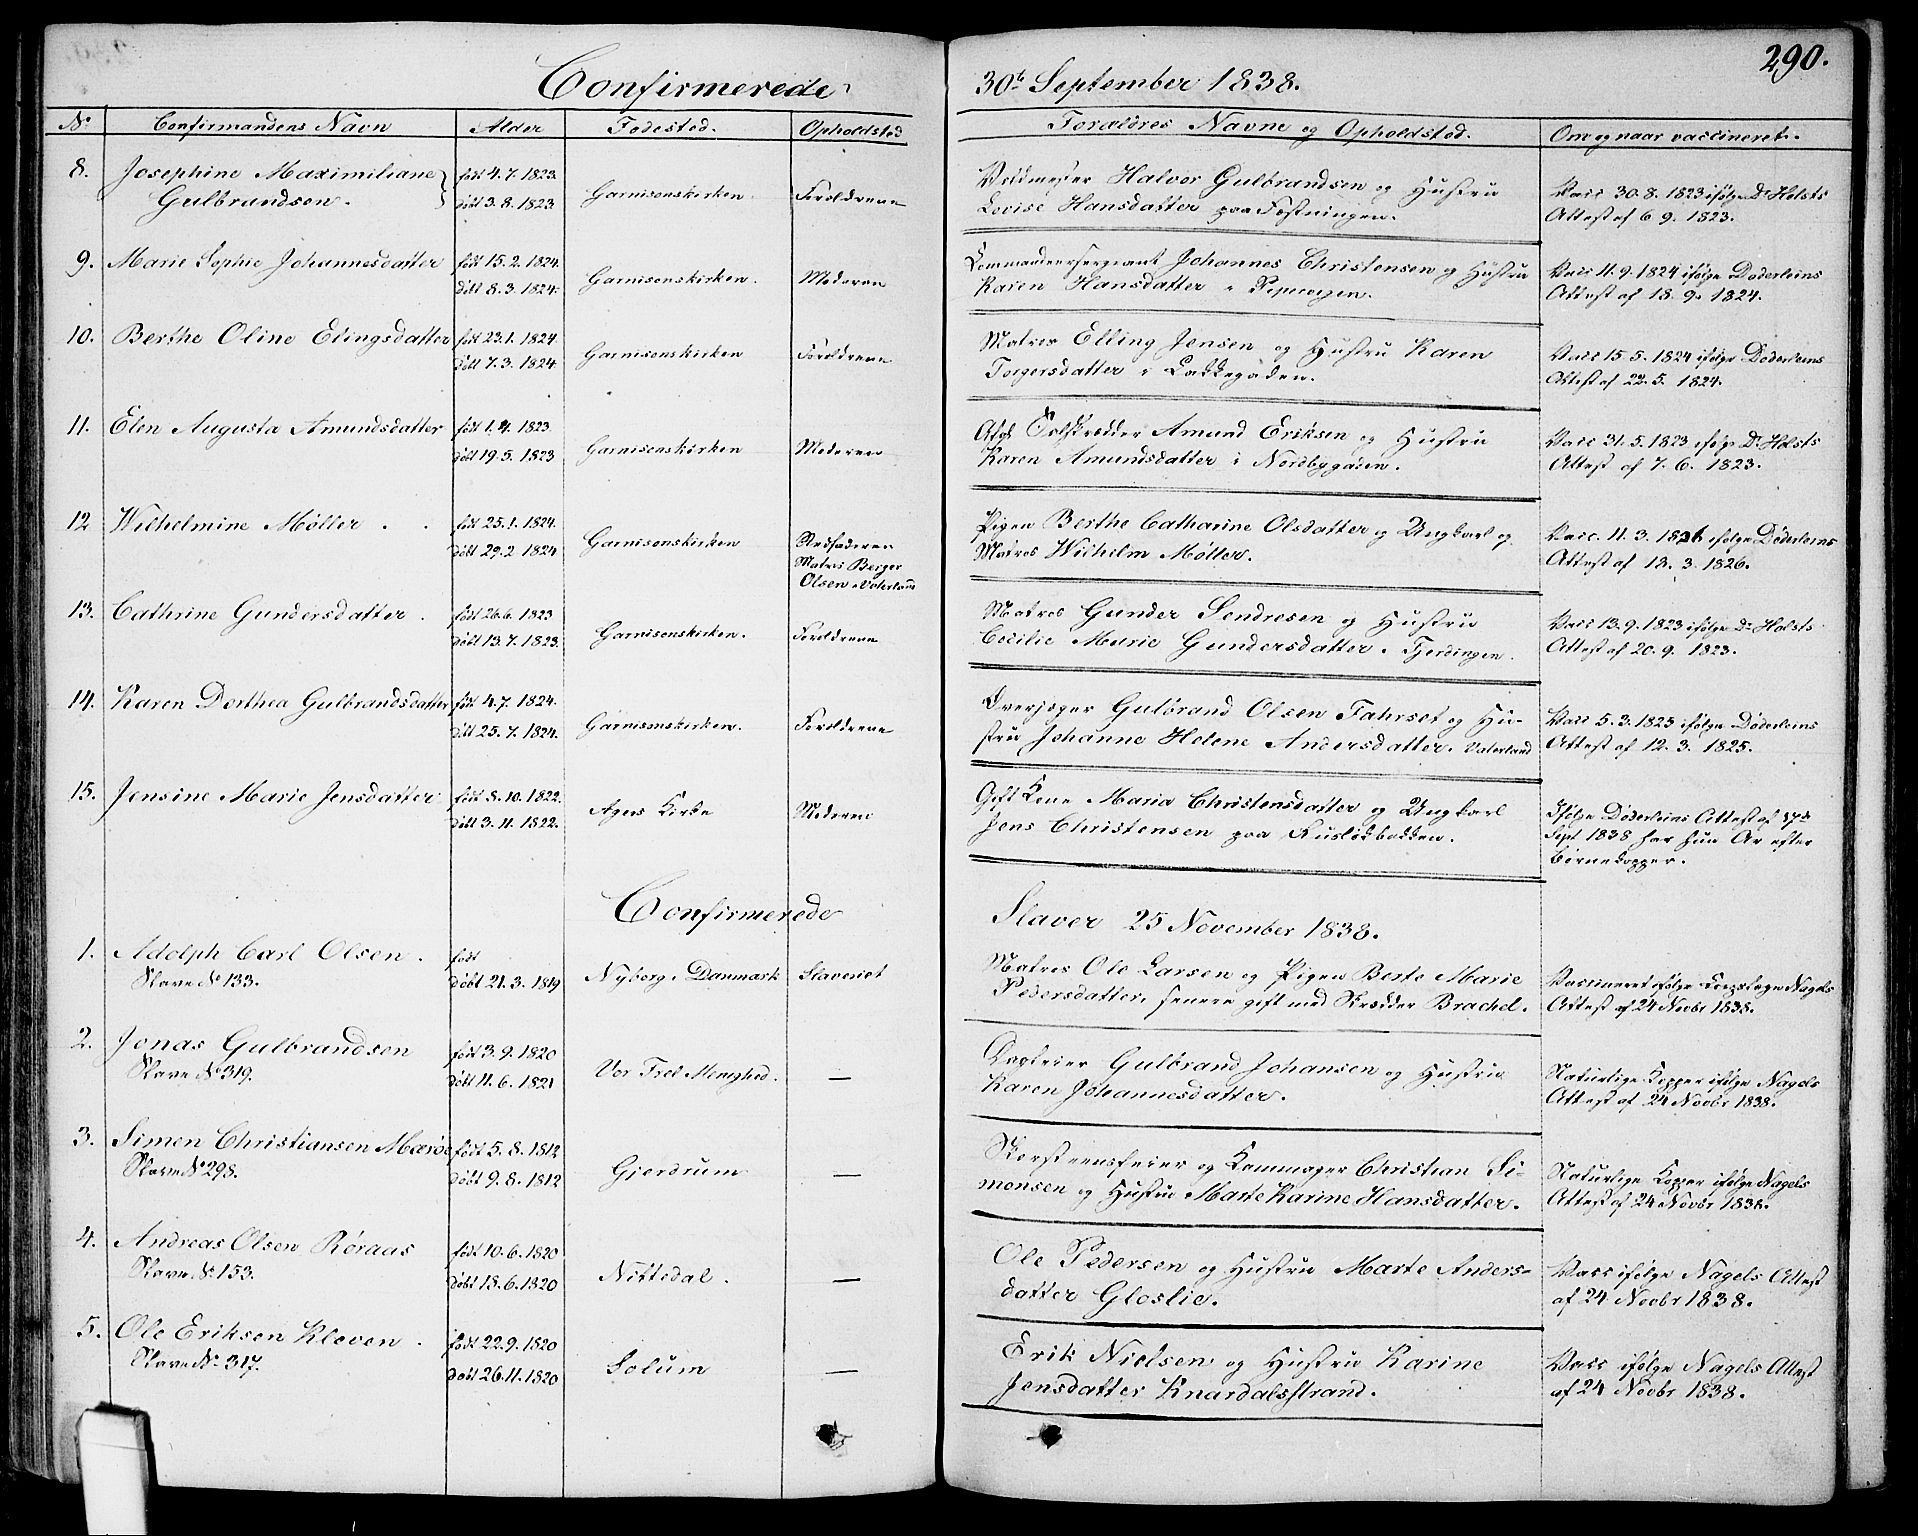 290.
Confirmerede
30te September 1838.
No Confirmandens Navn Alder Fødested. Opholdsted Forældres Navne og Opholdsted. Om og naar vaccineret.
8. Josephine Maximiliane født 4.7.1823. Halvor Gulbrandsen og Hustru Vacc 30.8.1823 ifølge Dr Holsts
Gulbrandsen. døbt 3.8.1823 Garnisonskirken. Forældrene Lovise Hansdatter paa Fæstningen. Attest af 6 9. 1823.
9. Marie Sophie Johannesdatter født 15.2.1824. Commandeersergeant Johannes Christensen og Hustru Vacc 11.9.1824 ifølge Døderleins
døbt 8.3.1824. Garnisonskirken. Moderen Karen Hansdatter i Pipervigen. Attest af 18.9.1824.
10. Berthe Oline Elingsdatter født 23.1.1824. Matros Elling Jensen og Hustru Karen Vacc 15.5.1824 ifølge Døderleins
døbt 7.3.1824. Garnisonskirken Forældrene Torgersdatter i Lakkegaden. Attest af 22.5.1824.
11. Elen Augusta Amundsdatter født 1.4.1823 Amund Eriksen og Hustru Vacc 31.5.1823 ifølge Dr Holsts
døbt 19.5.1823 Garnisonskirken Moderen Karen Amundsdatter i Nordbygaden. Attest af 7.6.1823.
12 Wilhelmine Møller født 25.1.1824. Pigen Berthe Catharine Olsdatter og Ungkarl og Vacc. 11.3.1826 ifølge Døderleins
døbt 29.2 1824 Garnisonskirken Stedfaderen Matros Wilhelm Møller. Attest af 12.3.1826.
Matros Berger
Olsen i Vaterland
13. Cathrine Gundersdatter. født 26.6.1823 Matros Gunder Sendresen og Hustru Vacc 13.9.1823 ifølge Dr Holsts
døbt 13.7.1823. Garnisonskirken. Forældrene Cecilie Marie Gundersdatter. Fjerdingen. Attest af 20.9.1823.
14. Karen Dorthea Gulbrandsdatter født 4.7.1824. Overjæger Gulbrand Olsen Fahrset og Hu- Vacc 5.3.1825 ifølge Døderleins
døbt 25.7.1824. Garnisonskirken. Forældrene stru Johanne Helene Andersdatter. Vaterland Attest af 12.3.1825.
15. Jensine Marie Jensdatter født 8.10.1822. Gift Kone Maria Christensdatter og Ungkarl Ifølge Døderleins Attest af 17de
døbt 3.11.1822. Agers Kirke Moderen Jens Christensen paa Ruseløkbakken. Sept 1838 har hun Ar efter
Børnekopper.
Confirmerede
Slaver 25 November 1838.
1. Adolph Carl Olsen. født Matros Ole Larsen og Pigen Berte Marie Vaccineret ifølge Korpslæge Nagels
Slave No 133. døbt 21.3.1819 Nyborg i Danmark Slaveriet Pedersdatter, senere gift med Skredder Brachel. Attest af 24 Novbr 1838.
2. Jonas Gulbrandsen født 3.9.1820 Gulbrand Johansen og Hustru Naturlige Kopper ifølge Nagels
Slave No 319. døbt 11.6.1821 Vor Frel Menighed. — Karen Johannesdatter. Attest af 24 Novbr 1838.
3. Simen Christiansen født 5.8.1812 Skorsteensfeier og Christian Si- Naturlige Kopper ifølge Nagels
Slave No 298. døbt 9.8.1812 Gjerdrum — monsen og Hustru Marte Karine Hansdatter. Attest af 24 Novbr 1838.
4. Andreas Olsen Røraas født 10.6.1820 Ole Pedersen og Hustru Marte Anders- Vacc ifølge Nagels Attest
Slave No 153. døbt 18.6.1820 Nittedal. — datter Gloslie. af 24 Novbr 1838.
5. Ole Eriksen Kleven. født 22.9.1820 Erik Nielsen og Hustru Karine Vacc ifølge Nagels Attest
Slave No 317. døbt 26.11.1820 Solum — Jensdatter Knardalsstrand. af 24 Novbr 1838.